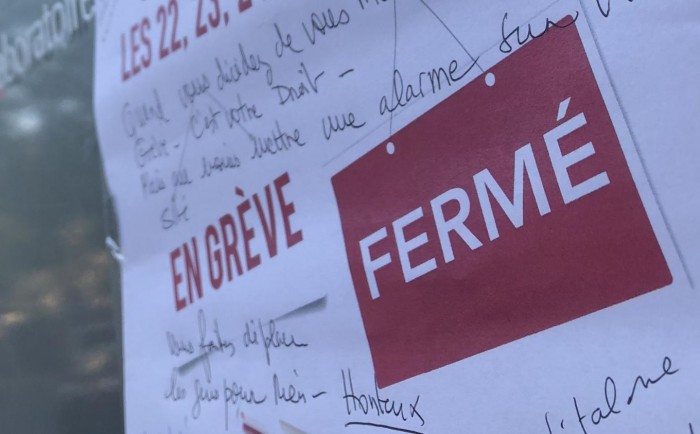 laboratoire
LES 22, 23, 2
Quand vous décidez de vous
Grève - C'est votre Droit -
Mais mettre une alarme sur
site
EN GRÈVE
FERMÉ
vous faites déplacer
les gens pour Rien - Honteux